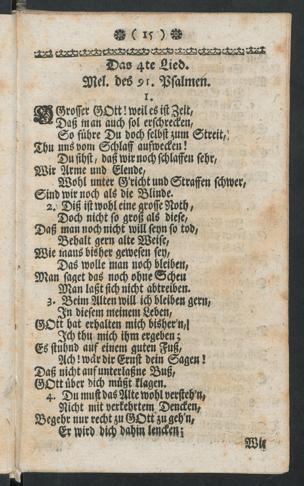 ( 15 )
Das 4te Lied.
Mel. des 91. Psalmen.
1.
Grosser GOtt! weil es ist Zeit,
Daß man auch sol erschrecken,
So führe Du doch selbst zum Streit,
Thu uns vom Schlaff aufwecken!
Du sihst, daß wir noch schlaffen sehr,
Wir Arme und Elende,
Wohl unter G'richt und Straffen schwer,
Sind wir noch als die Blinde.
2. Diß ist wohl eine grosse Noth,
Doch nicht so groß als diese,
Daß man noch nicht will seyn so tod,
Behalt gern alte Weise,
Wie mans bißher gewesen sey,
Das wolle man noch bleiben,
Man saget das noch ohne Scheu
Man laßt sich nicht abtreiben.
3. Beim Alten will ich bleiben gern,
In diesem meinem Leben,
GOtt hat erhalten mich bißher'n,
Ich thu mich ihm ergeben;
Es stühnd auf einem guten Fuß,
Ach! wär dir Ernst dein Sagen!
Daß nicht auf unterlaßne Buß,
GOtt über dich müßt klagen.
4. Du must das Alte wohl versteh'n,
Nicht mit verkehrtem Dencken,
Begehr nur recht zu GOtt zu geh'n,
Er wird dich dahin lencken;
Wie